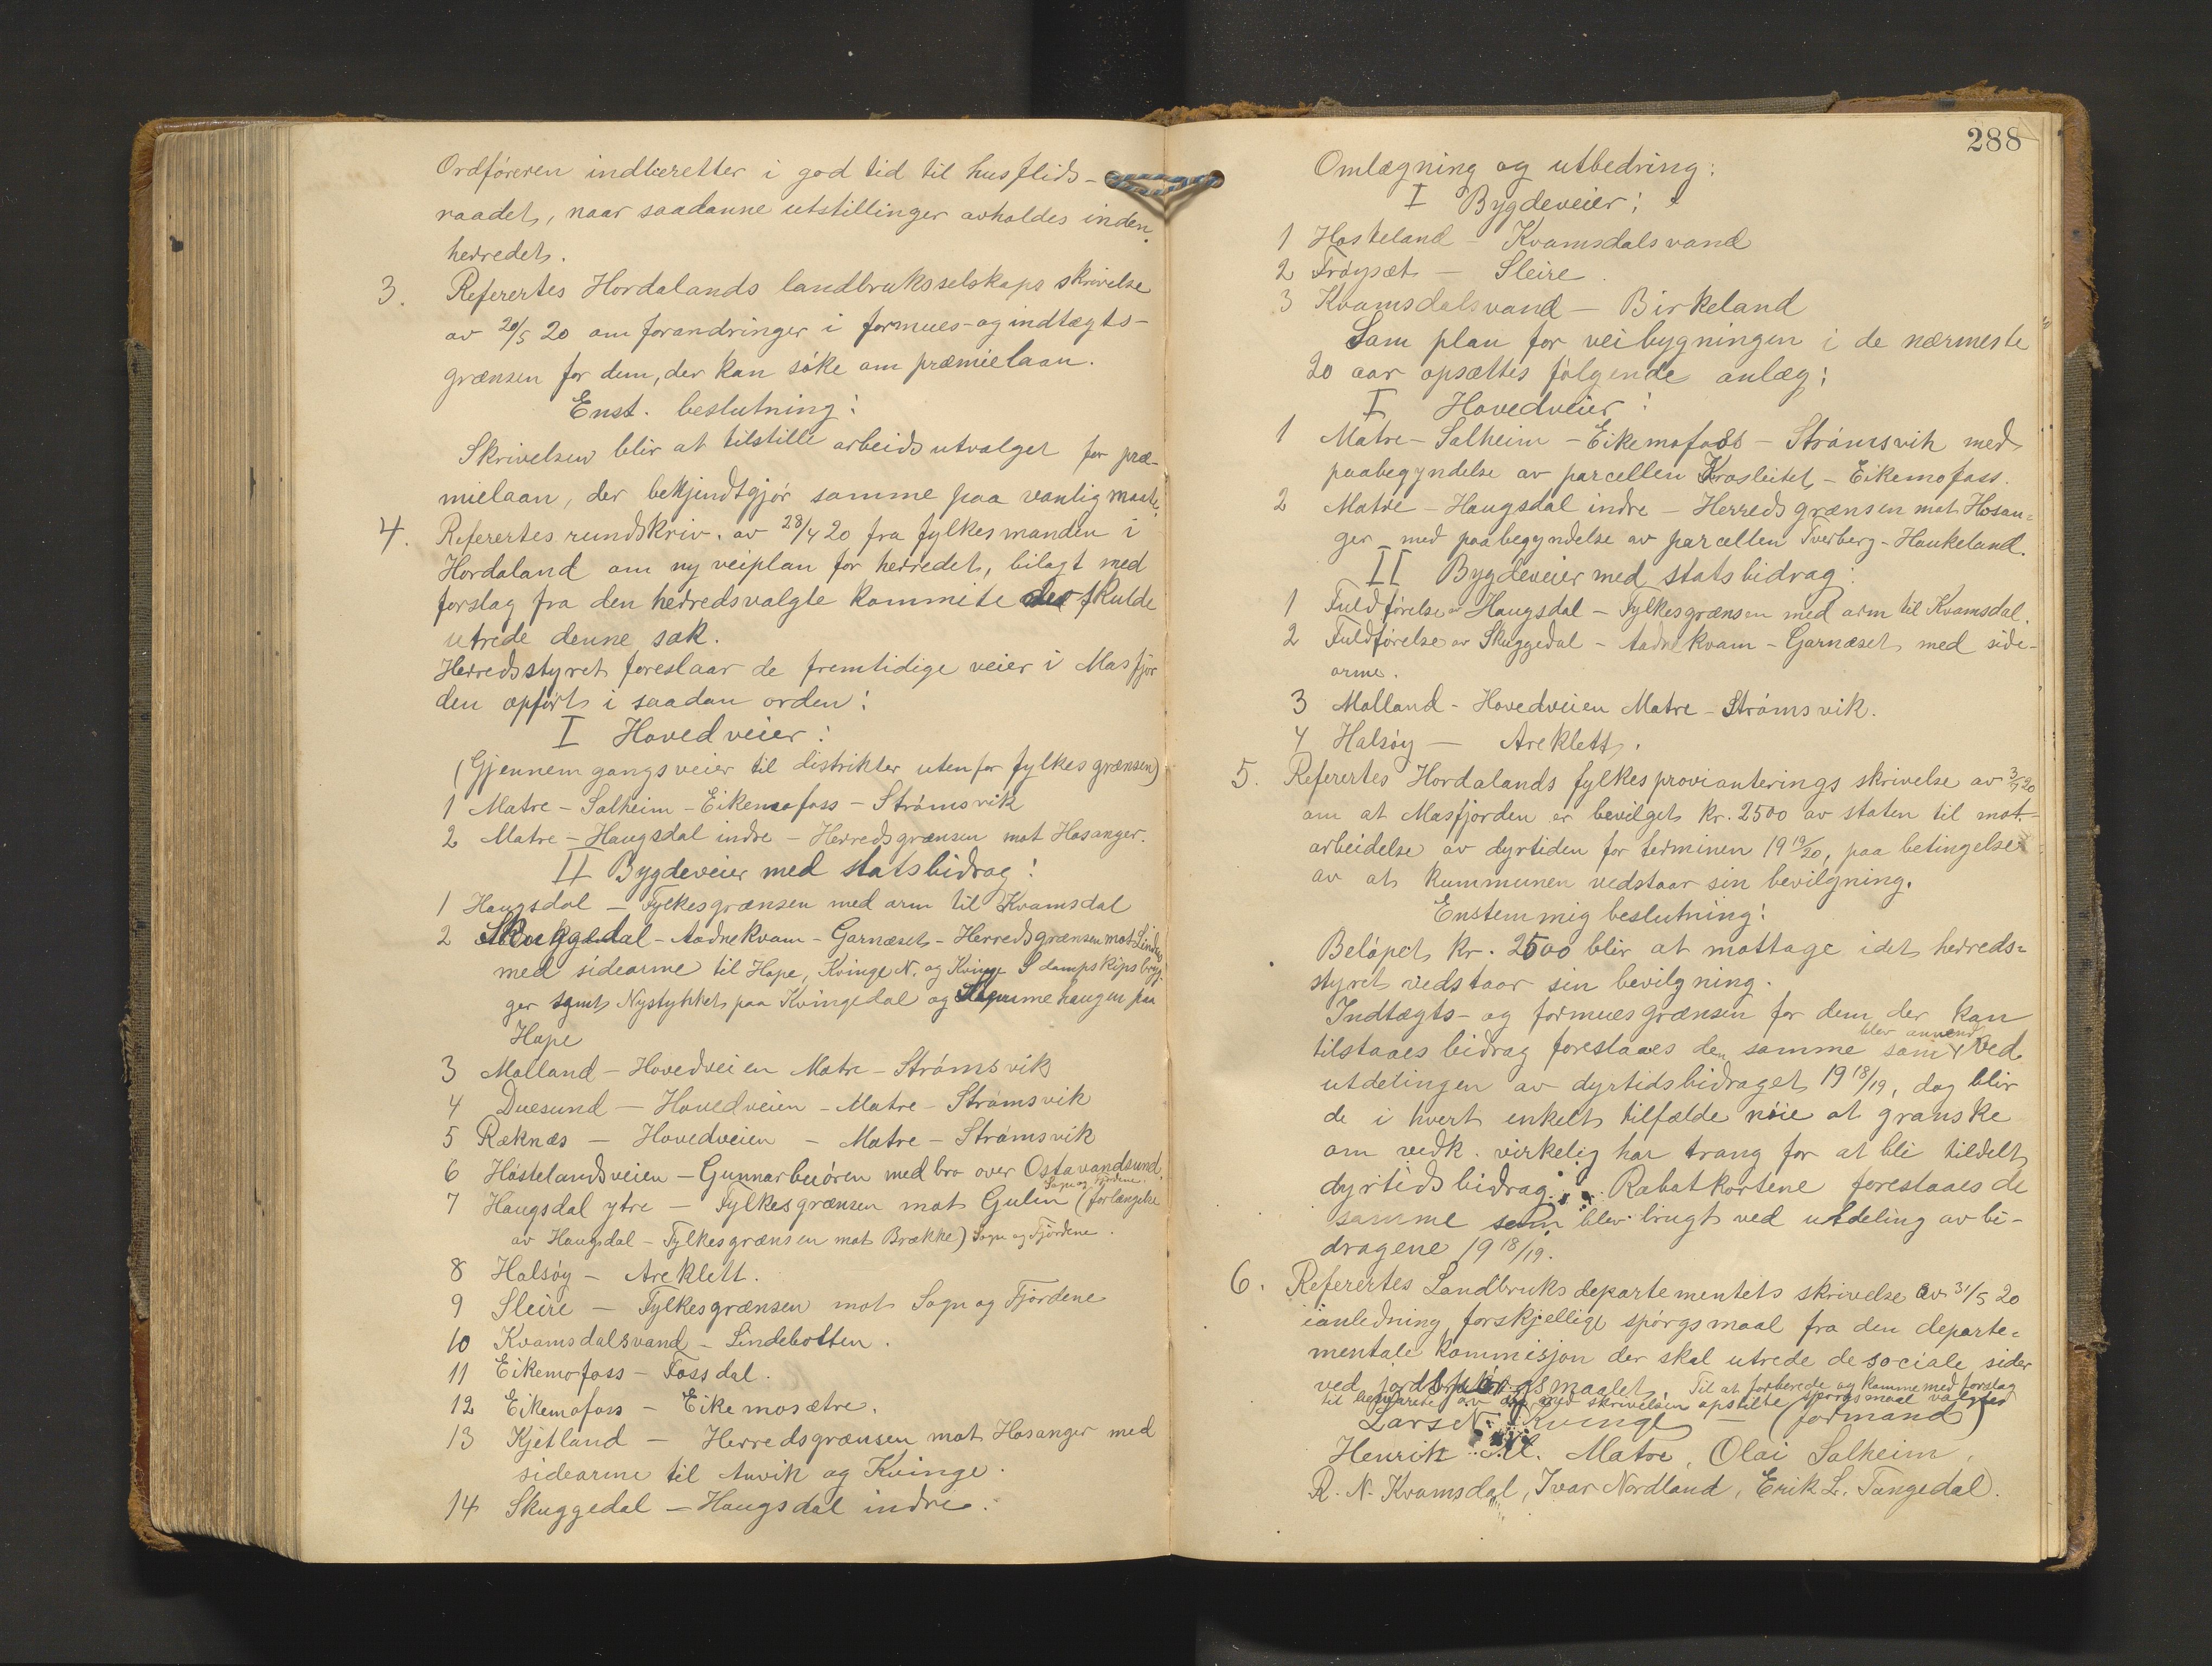 Ordføreren indberetter i god tid til husflids-
raadet, naar saadanne utstillinger avholdes inden
herredet.
3. Referertes Hordalands landbruksselskaps skrivelse
av 20/5 20 om forandringer i formues- og indtægts-
grænsen for dem, der kan søke om præmielaan.
Enst. beslutning:
Skrivelsen blir at tilstille arbeidsutvalget for præ-
mielaan, der bekjendtgjør samme paa vanlig maate.
4. Referertes rundskriv. av 28/4 20 fra fylkesmanden i
Hordaland om ny veiplan for herredet, bilagt med
forslag fra den herredsvalgte kommite der skulde
utrede denne sak.
Herredsstyret foreslaar de fremtidige veier i Masfjor
den opført i saadan orden:
I Hovedveier:
(Gjennemgangsveier til distrikter utenfor fylkesgrænsen)
1 Matre - Salheim - Eikemofoss - Strømsvik
2 Matre - Haugsdal indre - Herredsgrænsen mot Hosanger.
II Bygdeveier med statsbidrag:
1 Haugsdal - Fylkesgrænsen med arm til Kvamsdal
2 Skuggedal - Aadnekvam - Garnæset - Herredsgrænsen mot Lindås
med sidearme til Hope, Kvinge N. og Kvinge S dampskipsbryg-
ger samt Nystykket paa Kvingedal og haugen paa
Hope
3 Molland - Hovedveien Matre - Strømsvik
4 Duesund - Hovedveien - Matre - Strømsvik
5 Ræknæs - Hovedveien - Matre - Strømsvik
6 Høstelandsveien - Gunnarbuøren med bro over Ostavandsund.
Sogn og Fjordene.
7 Haugsdal ytre - Fylkesgrænsen mot Gulen (forlængelse
av Haugsdal - Fylkesgrænsen mot Brække) Sogn og Fjordene.
8 Halsøy - Areklett.
9 Sleire - Fylkesgrænsen mot Sogn og Fjordene
10 Kvamsdalsvand - Lindebotten.
11 Eikemofoss - Fossdal.
12 Eikemofoss - Eikemosætre.
13 Kjetland - Herredsgrænsen mot Hosanger med
sidearme til Anvik og Kvinge.
14 Skuggedal - Haugsdal indre.
288
Omlægning og utbedring:
I Bygdeveier:
1 Hosteland - Kvamsdalsvand
2 Frøysæt - Sleire.
3 Kvamsdalsvand - Birkeland
Som plan for veibygningen i de nærmeste
20 aar opsættes følgende anlæg:
I Hovedveier:
1 Matre - Salheim - Eikemofoss - Strømsvik med
paabegyndelse av parcellen Krosleitet - Eikemofoss.
2 Matre - Haugsdal indre - Herredsgrænsen mot Hosan=
ger - med paabegyndelse av parcellen Tverberg - Haukeland.
II Bygdeveier med statsbidrag:
1 Fuldførelse av Haugsdal - Fylkesgrænsen med arm til Kvamsdal.
2 Fuldførelse av Skuggedal - Aadnekvam - Garnæset med side-
arme.
3 Molland - Hovedveien Matre - Strømsvik.
4 Halsøy - Areklett.
5. Referertes Hordalands fylkesprovianterings skrivelse av 3/5 20
om at Masfjorden er bevilget kr. 2500 av staten til mot-
arbeidelse av dyrtiden for terminen 19 19/20, paa betingelse
av at kommunen vedstaar sin bevilgning.
Enstemmig beslutning:
Beløpet kr. 2500 blir at mottage idet herreds=
styret vedstaar sin bevilgning.
Indtægts- og formuesgrænsen for dem der kan
blev anvend
tilstaaes bidrag foreslaaes den samme som ved
utdelingen av dyrtidsbidraget 19 18/19, dog blir
de i hvert enkelt tilfælde nøie at granske
om vedk. virkelig har trang for at bli tildelt
dyrtidsbidrag. Rabatkortene foreslaaes de
samme som blev brugt ved utdeling av bi-
dragene 19 18/19.
6. Referertes Landbruksdepartementets skrivelse av 31/5 20
ianledning forskjellige spørgsmaal fra den departe=
mentale kommisjon der skal utrede de sociale sider
ved jordspørgsmaalet. Til at forberede og komme med forslag
til besvarelse av de med skrivelsen opstilte spørgsmaal valgtes
Lars N. Kvinge - (formand)
Henrik Matre, Olai Salheim,
R. N. Kvamsdal, Ivar Nordland, Erik L. Tangedal.